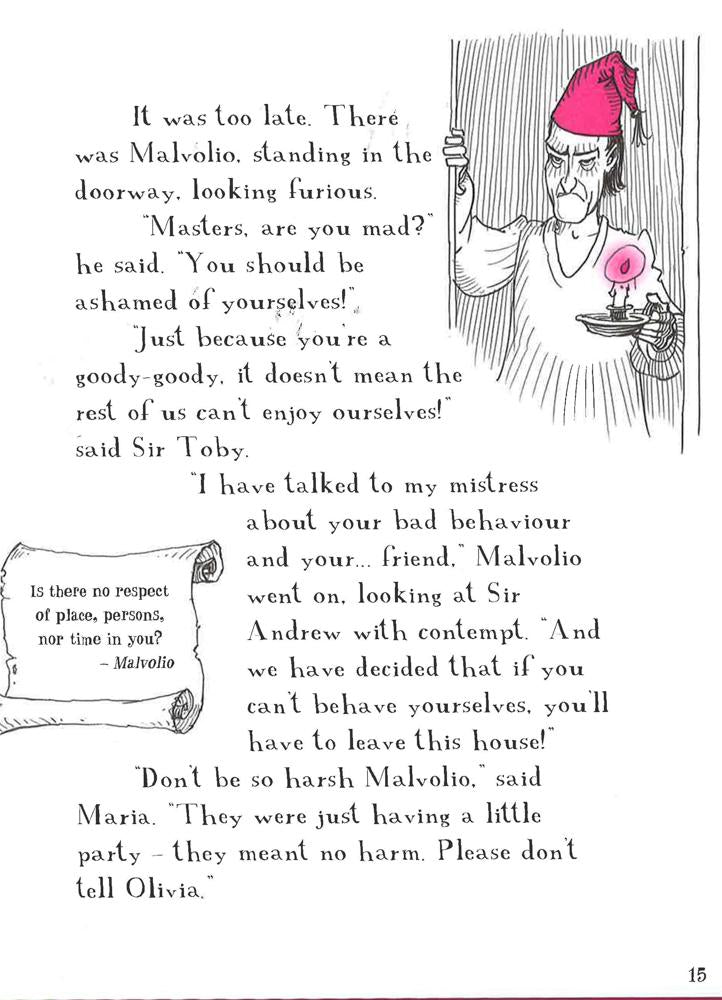 It was too late. There
was Malvolio, standing in the
doorway, looking furious.
"Masters, are you mad?"
he said. "You should be
ashamed of yourselves!"
"Just because you're a
goody-goody, it doesn't mean the
rest of us can't enjoy ourselves!"
said Sir Toby.
"I have talked to my mistress
about your bad behaviour
and your... friend," Malvolio
went on, looking at Sir
Andrew with contempt. "And
we have decided that if you
can't behave yourselves, you'll
have to leave this house!"
Is there no respect
of place, persons,
nor time in you?
– Malvolio
"Don't be so harsh Malvolio," said
Maria. "They were just having a little
party – they meant no harm. Please don't
tell Olivia."
15